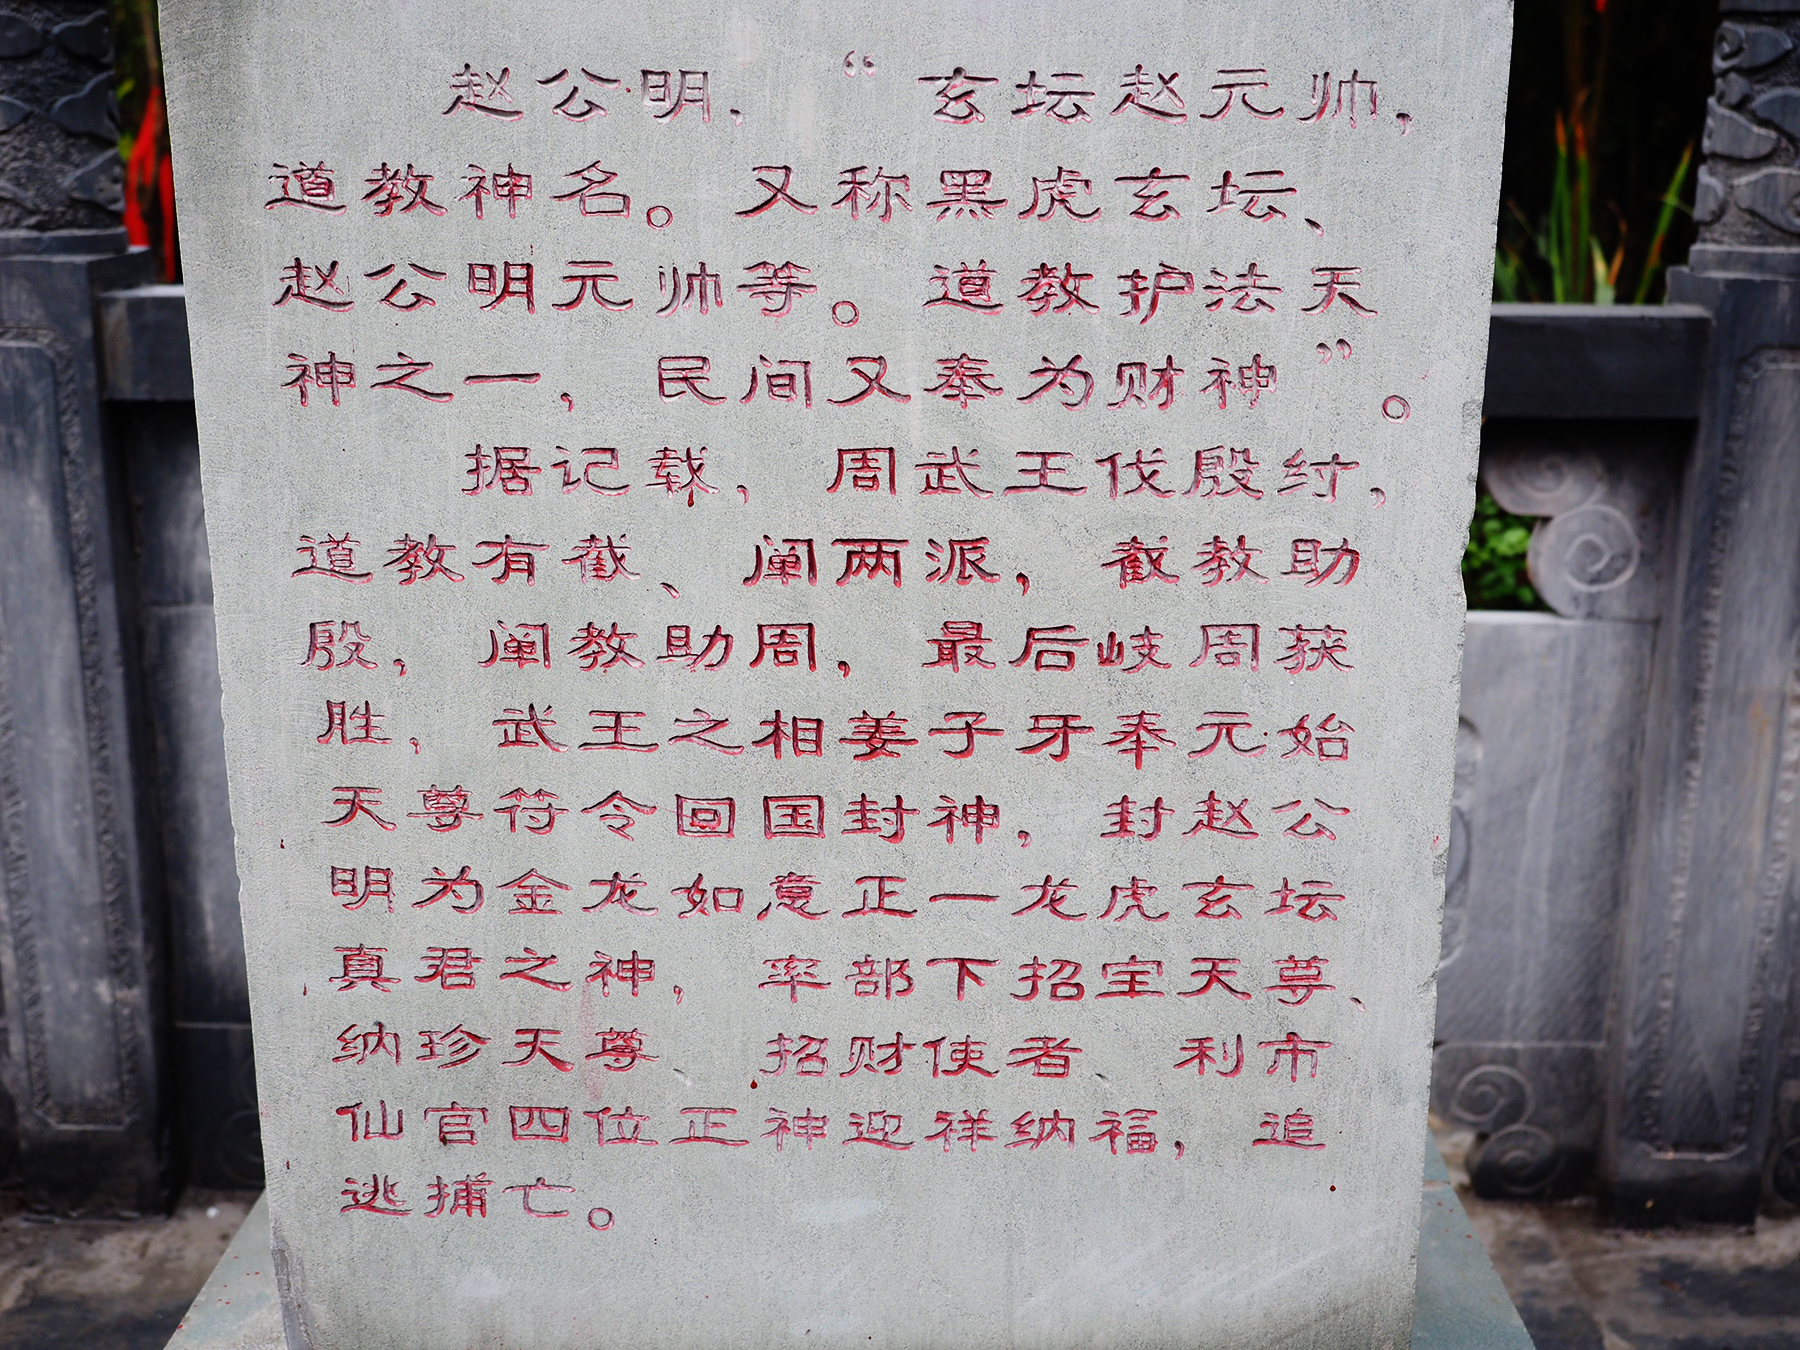 赵公明，“玄坛赵元帅，
道教神名。又称黑虎玄坛、
赵公明元帅等。道教护法天
神之一，民间又奉为财神”。
据记载，周武王伐殷纣，
道教有截、阐两派，截教助
殷，阐教助周，最后岐周获
胜，武王之相姜子牙奉元始
天尊符令回国封神，封赵公
明为金龙如意正一龙虎玄坛
真君之神，率部下招宝天尊、
纳珍天尊、招财使者、利市
仙官四位正神迎祥纳福，追
逃捕亡。